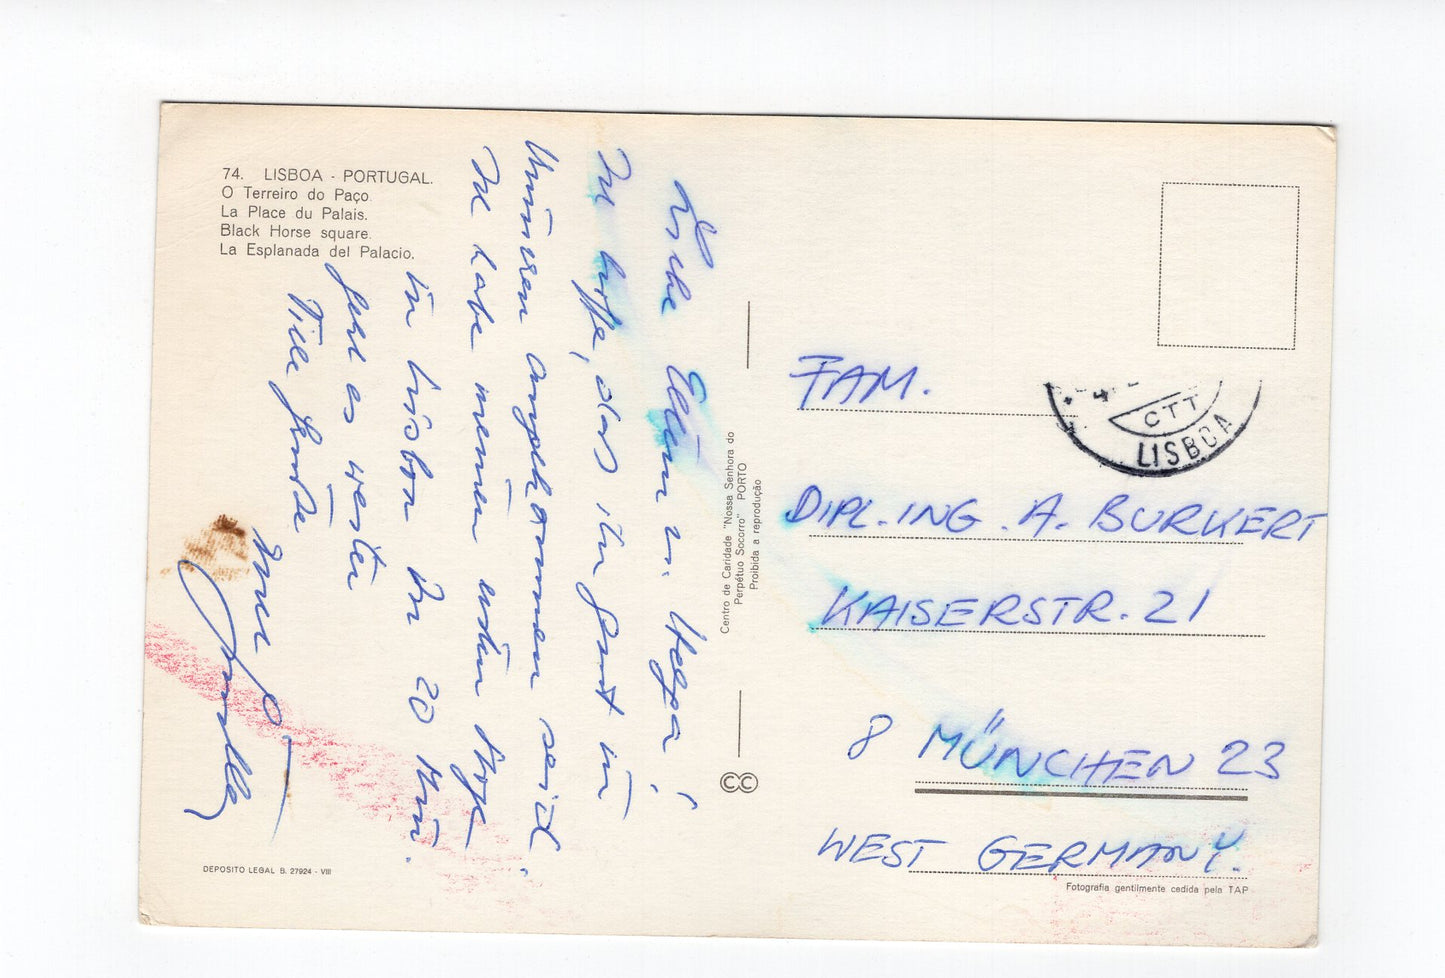 74. LISBOA - PORTUGAL.
O Terreiro do Paço.
La Place du Palais.
Black Horse square.
La Esplanada del Palacio.
Liebe Eltern u. Helga!
Ich hoffe, das ihr gut in
München angekommen seid.
Ich habe meinen ersten Stop
in Lissbon. In 20 Min.
geht es weiter
Viele Grüße
euer
Centro de Caridade "Nossa Senhora do
Perpétuo Socorro" PORTO
Proibida a reprodução
CC
CTT
LISBOA
FAM.
DIPL.ING. A. BURKERT
KAISERSTR. 21
8 MÜNCHEN 23
WEST GERMANY.
DEPOSITO LEGAL B. 27924 - VIII
Fotografia gentilmente cedida pela TAP